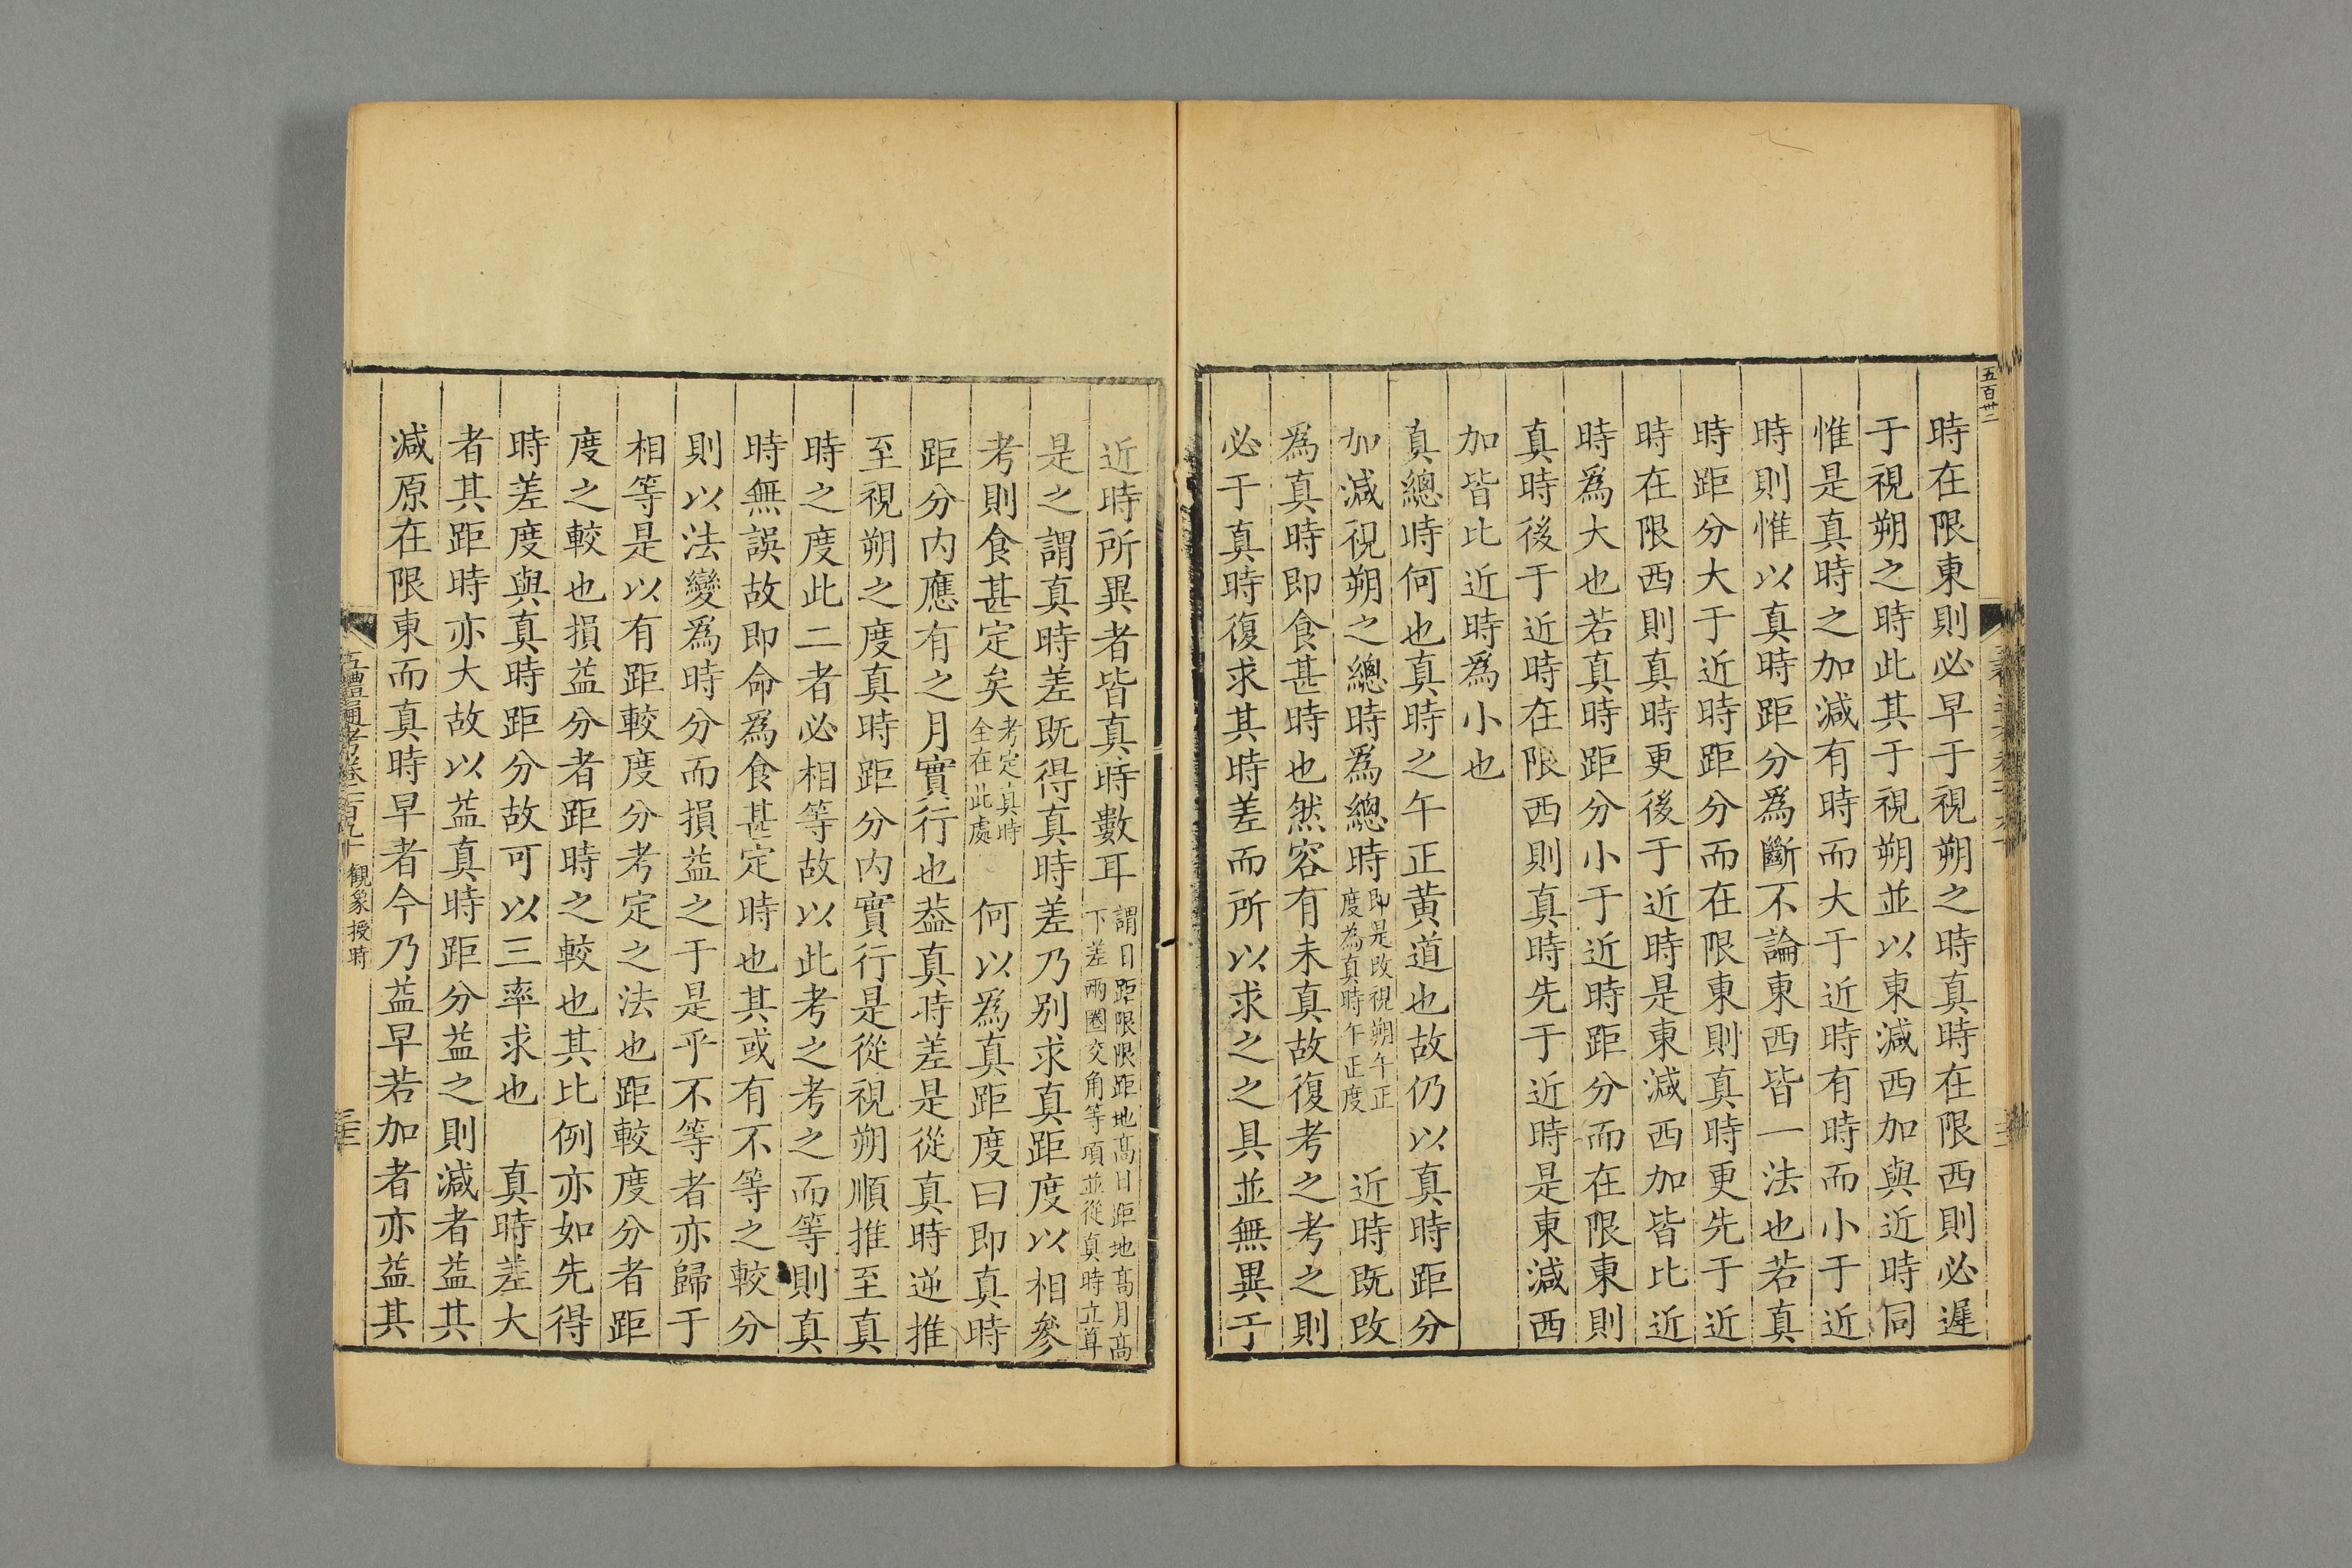 五百卅二
時在限東則必早于視朔之時真時在限西則必遲
于視朔之時此其于視朔並以東減西加與近時同
惟是真時之加減有時而大于近時有時而小于近
時則惟以真時距分爲斷不論東西皆一法也若真
時距分大于近時距分而在限東則真時更先于近
時在限西則真時更後于近時是東減西加皆比近
時爲大也若真時距分小于近時距分而在限東則
真時後于近時在限西則真時先于近時是東減西
加皆比近時爲小也
真總時何也真時之午正黄道也故仍以真時距分
加減視朔之總時爲總時即是改視朔午正度為真時午正度　近時既改
爲真時即食甚時也然容有未真故復考之考之則
必于真時復求其時差而所以求之之具並無異于
近時所異者皆真時數耳謂日距限限距地高日距地髙月高下差兩圈交角等項並從真時立算
是之謂真時差既得真時差乃别求真距度以相參
考則食甚定矣考定真時全在此處　何以爲真距度曰即真時
距分内應有之月實行也葢真時差是從真時逆推
至視朔之度真時距分内實行是從視朔順推至真
時之度此二者必相等故以此考之考之而等則真
時無誤故即命爲食甚定時也其或有不等之較分
則以法變爲時分而損益之于是乎不等者亦歸于
相等是以有距較度分考定之法也距較度分者距
度之較也損益分者距時之較也其比例亦如先得
時差度與真時距分故可以三率求也　真時差大
者其距時亦大故以益真時距分益之則減者益其
減原在限東而真時早者今乃益早若加者亦益其
五禮通考卷一百九十　觀象授時